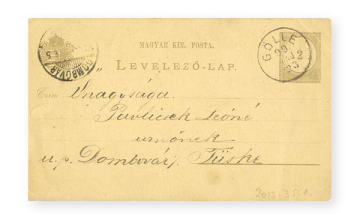 MAGYAR KIR. POSTA.
LEVELEZŐ-LAP.
GÖLLE
99
12
DOMBOVÁR
Czim
Únagysága
Pavlicsek
urnőnek
u. p. Dombovár, Tüske